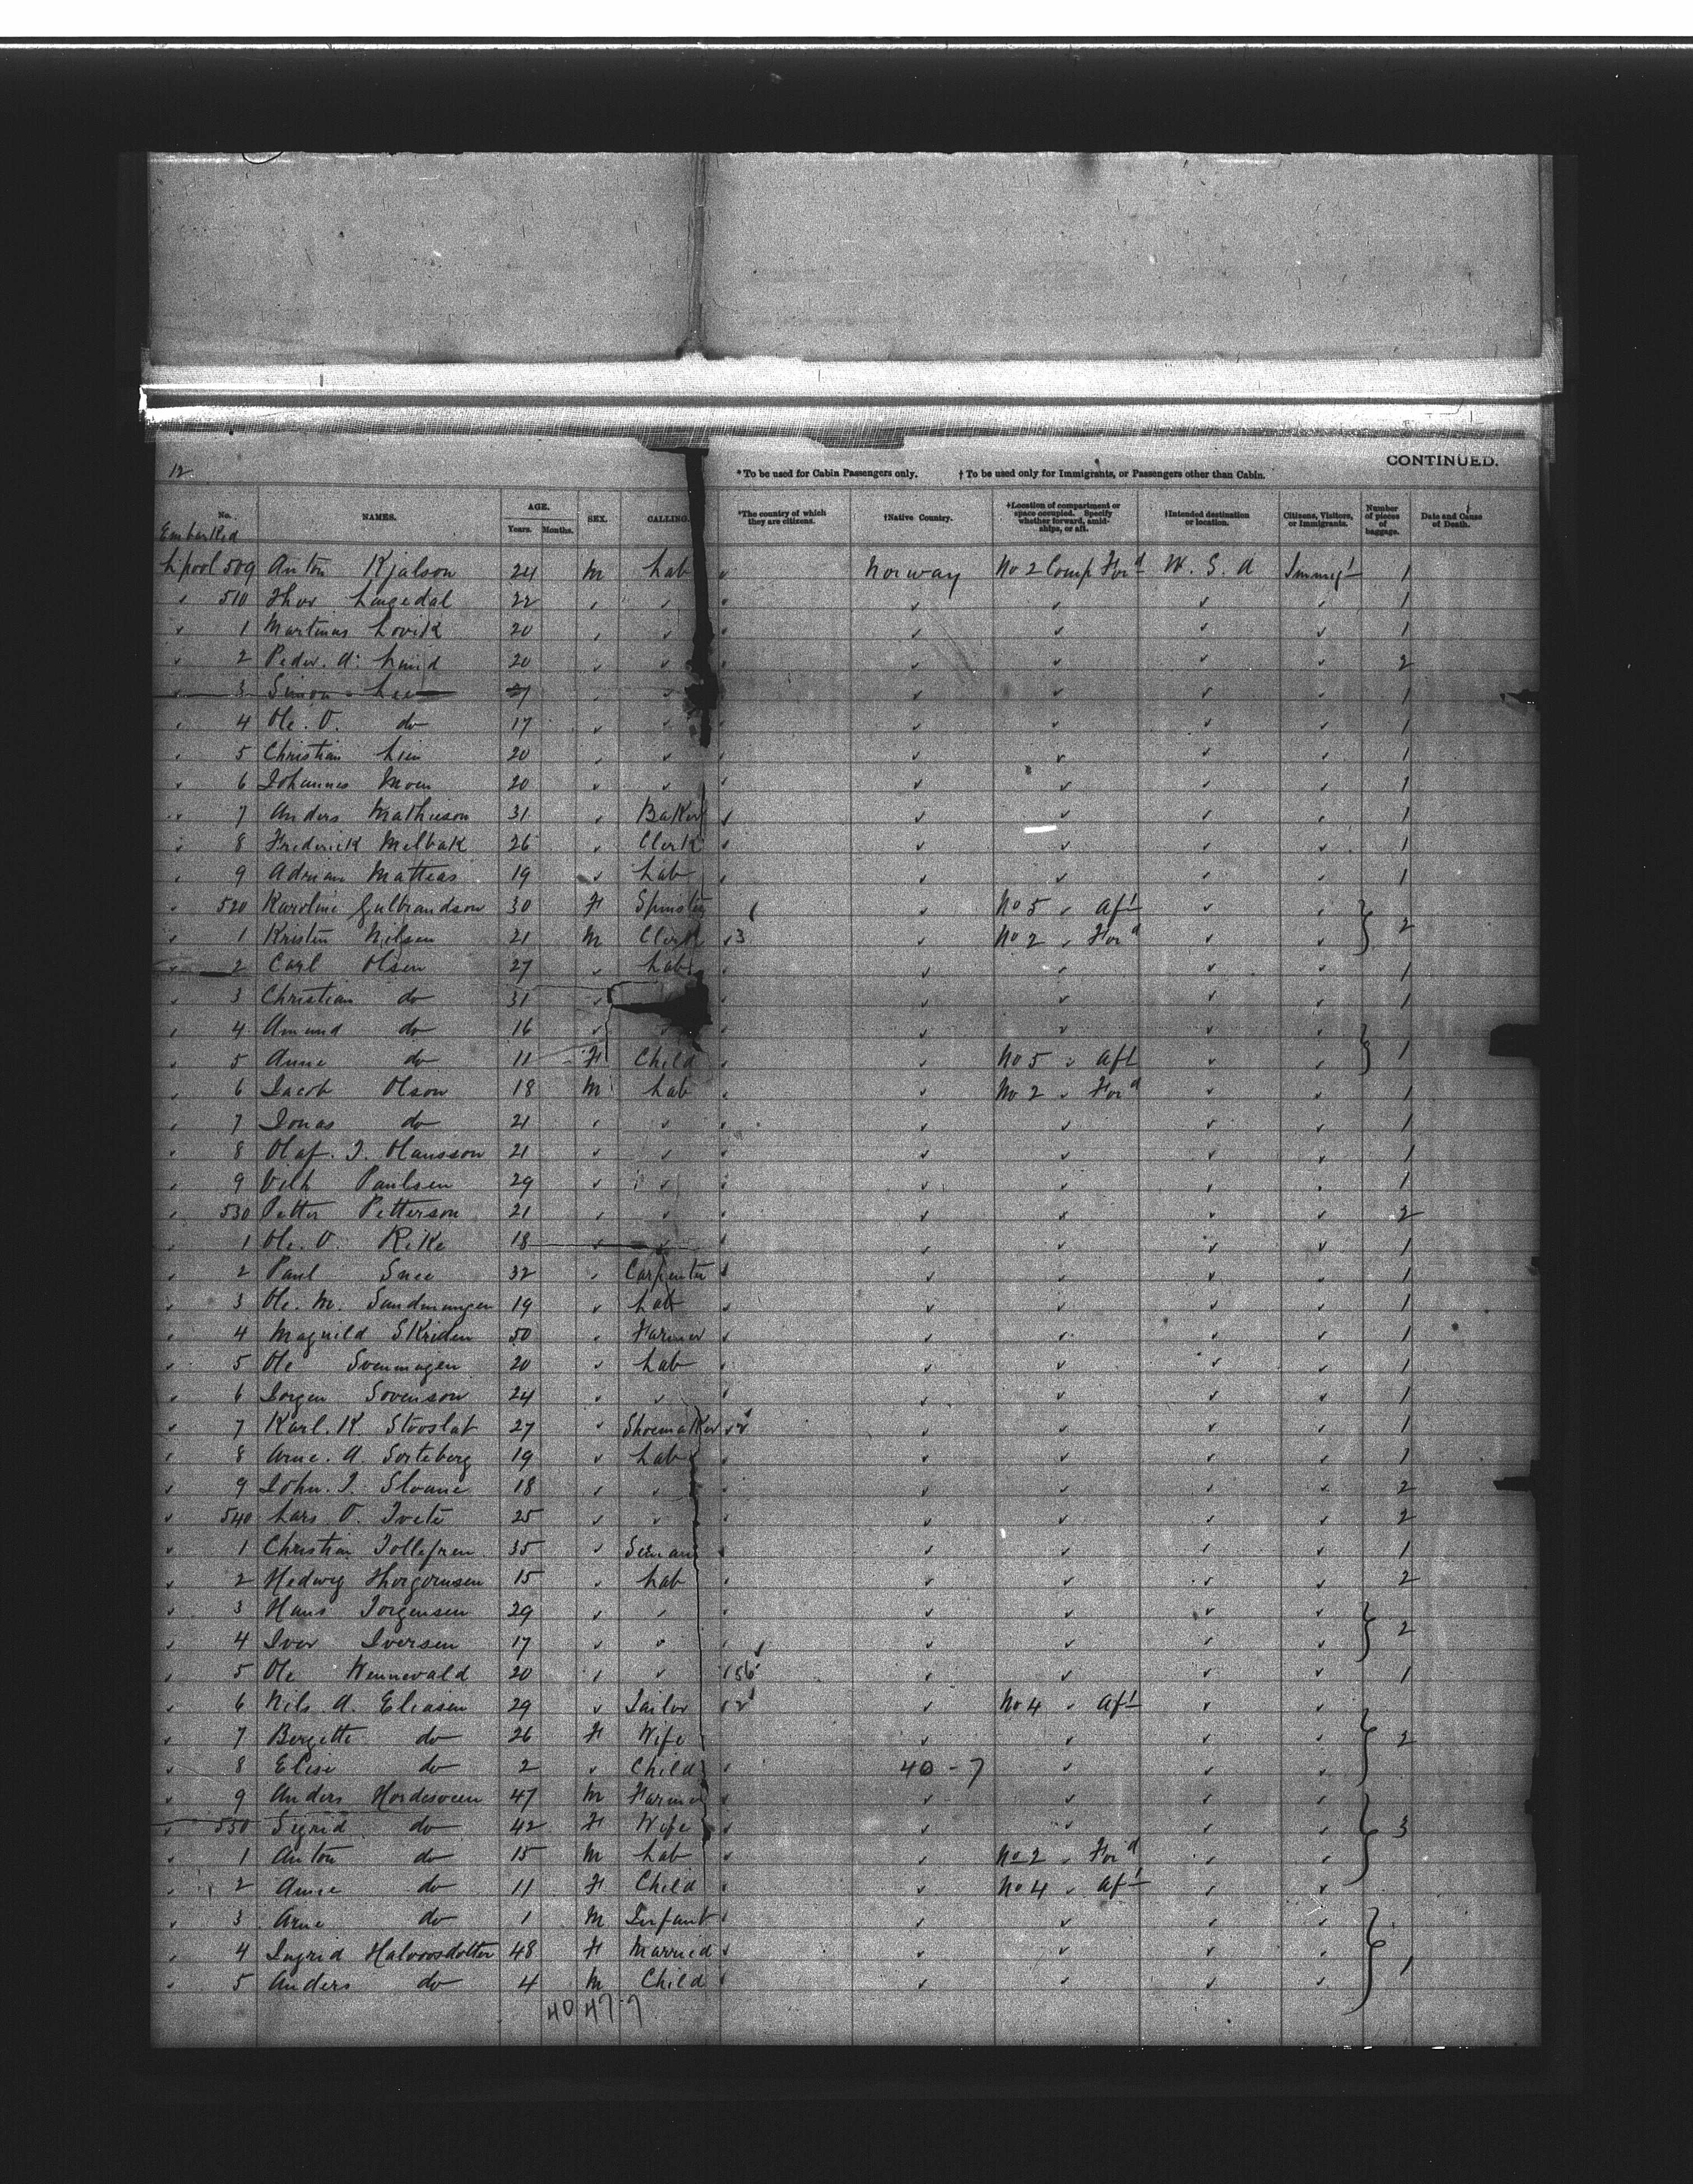 12
* To be used for Cabin Passengers only. † To be used only for Immigrants, or Passengers other than Cabin. CONTINUED.
No. NAMES. AGE. Years. Months. SEX. CALLING. *The country of which they are citizens. †Native Country. †Location of compartment or space occupied. Specify whether forward, amidships, or aft. †Intended destination or location. Citizens, Visitors, or Immigrants. Number of pieces of baggage. Date and Cause of Death.
Embarked
L pool 509 Anton Kjalson 24 M Lab Norway No 2 Comp For'd U. S. A Immigt 1
510 Thor Langedal 22 1
1 Martinus Lovik 20 1
2 Peder. A. 20 2
3 Simon Lee 21 1
4 Ole. O. do 17 1
5 Christian Lien 20 1
6 Johannes Moen 20 1
7 Anders Mathieson 31 Baker 1
8 Frederick Melbak 26 Clerk 1
9 Adrian Matteas 19 Lab 1
520 Karoline Gulbrandson 30 F Spinster No 5 Aft
1 Kristen Nilsen 21 M Clerk 3 No 2 For'd 2
2 Carl Olsen 27 Lab 1
3 Christian do 31 1
4 Amund do 16
5 Anne do 11 F Child No 5 Aft 1
6 Jacob Olson 18 M Lab No 2 For'd 1
7 Jonas do 21 1
8 Olaf. J. Olausson 21 1
9 Vilh Paulsen 29 1
530 Petter Petterson 21 2
1 Ole. O. Rike 18 1
2 Paul 32 Carpenter 1
3 Ole. M. 19 Lab 1
4 Magnild Skriden 50 Farmer 1
5 Ole 20 Lab 1
6 Jorgen Sovenson 24 1
7 Karl. K. Stroslat 27 Shoemaker 2 1
8 Arne. A. Sorteberg 19 Lab 1
9 John. J. Sloane 18 2
540 Lars O. Tveite 25 2
1 Christian Tollefsen 35 Seaman 1
2 Hedwig 15 Lab 2
3 Hans Jorgensen 29
4 Iver Iversen 17 2
5 Ole Wennevald 20 56 1
6 Nils A. Eliasen 29 Tailor 2 No 4 Aft
7 Bergette do 26 F Wife 2
8 Elise do 2 Child 40 - 7
9 Anders 47 M Farmer
550 Sigrid do 42 F Wife 3
1 Anton do 15 M Lab No 2 For'd
2 Anne do 11 F Child No 4 Aft
3 Arne do 1 M Infant
4 Ingrid Halvorsdotter 48 F Married 1
5 Anders do 4 M Child
40 47-7